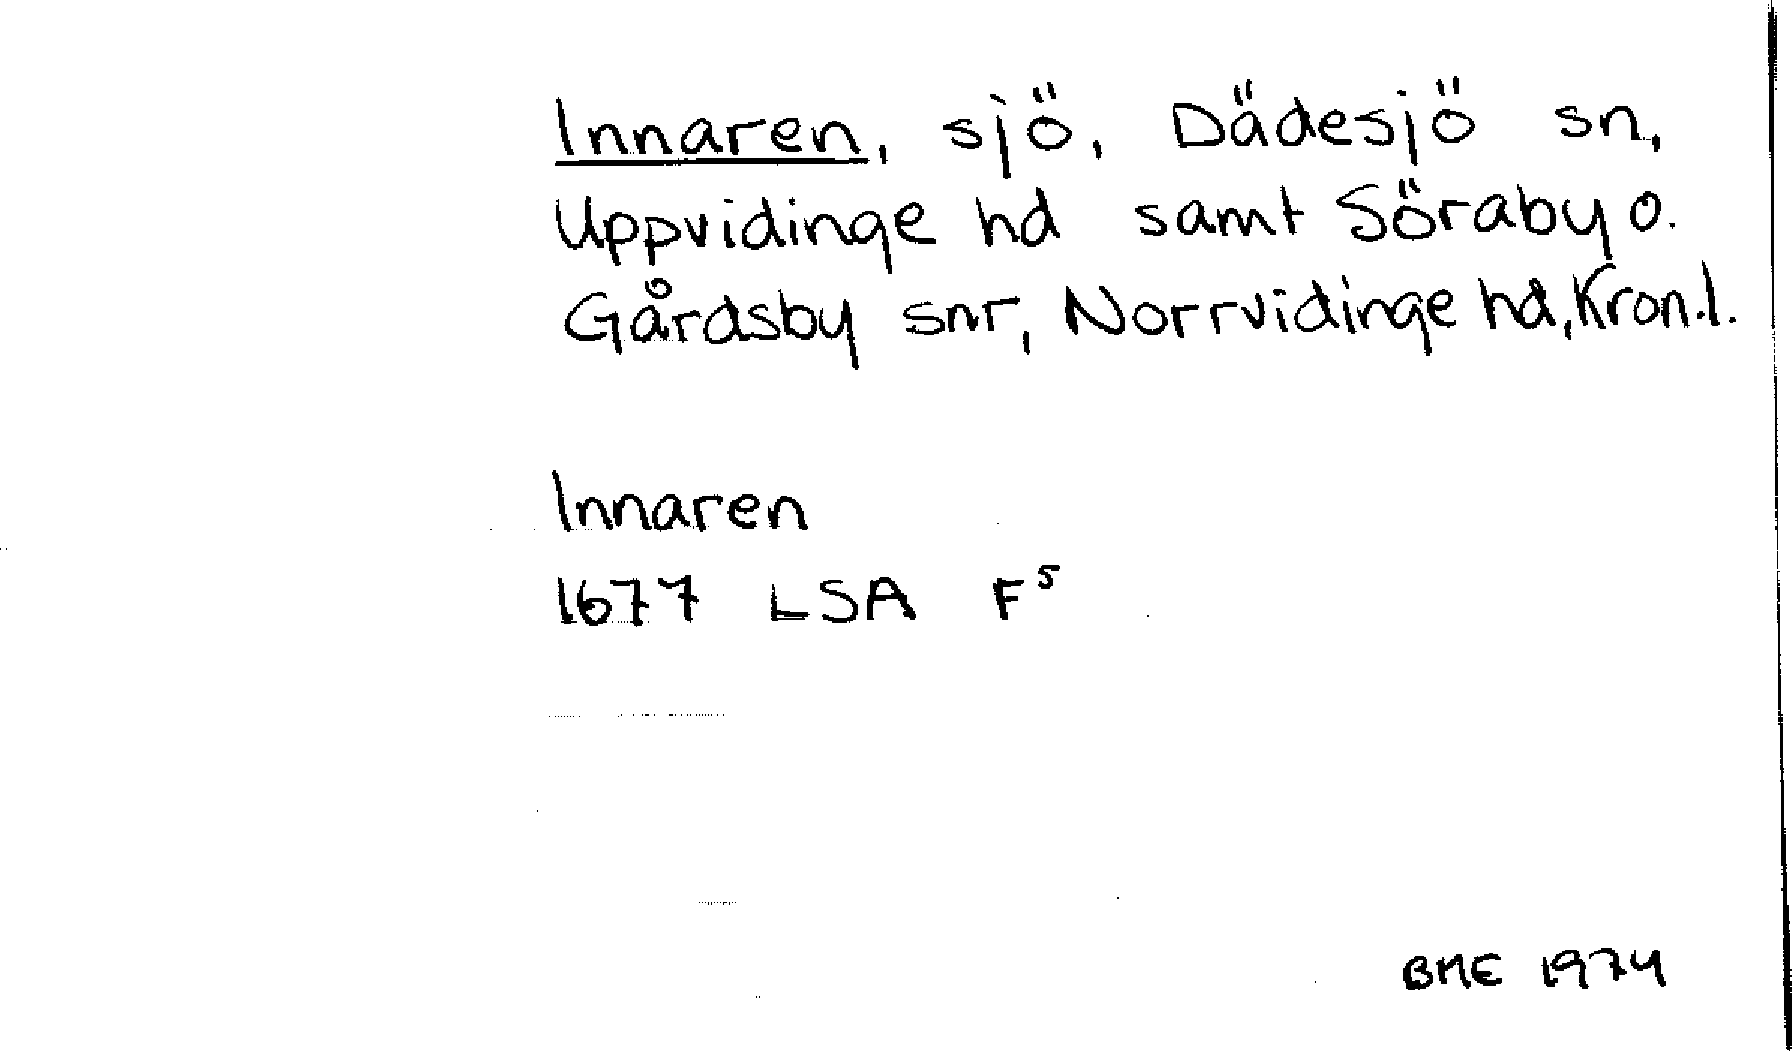 Innaren, sjö, Dädesjö sn,
Uppvidinge hd samt Söraby o.
Gårdsby snr, Norrvidinge hd, Kron.l.
Innaren
1677 LSA F⁵
BME 1974